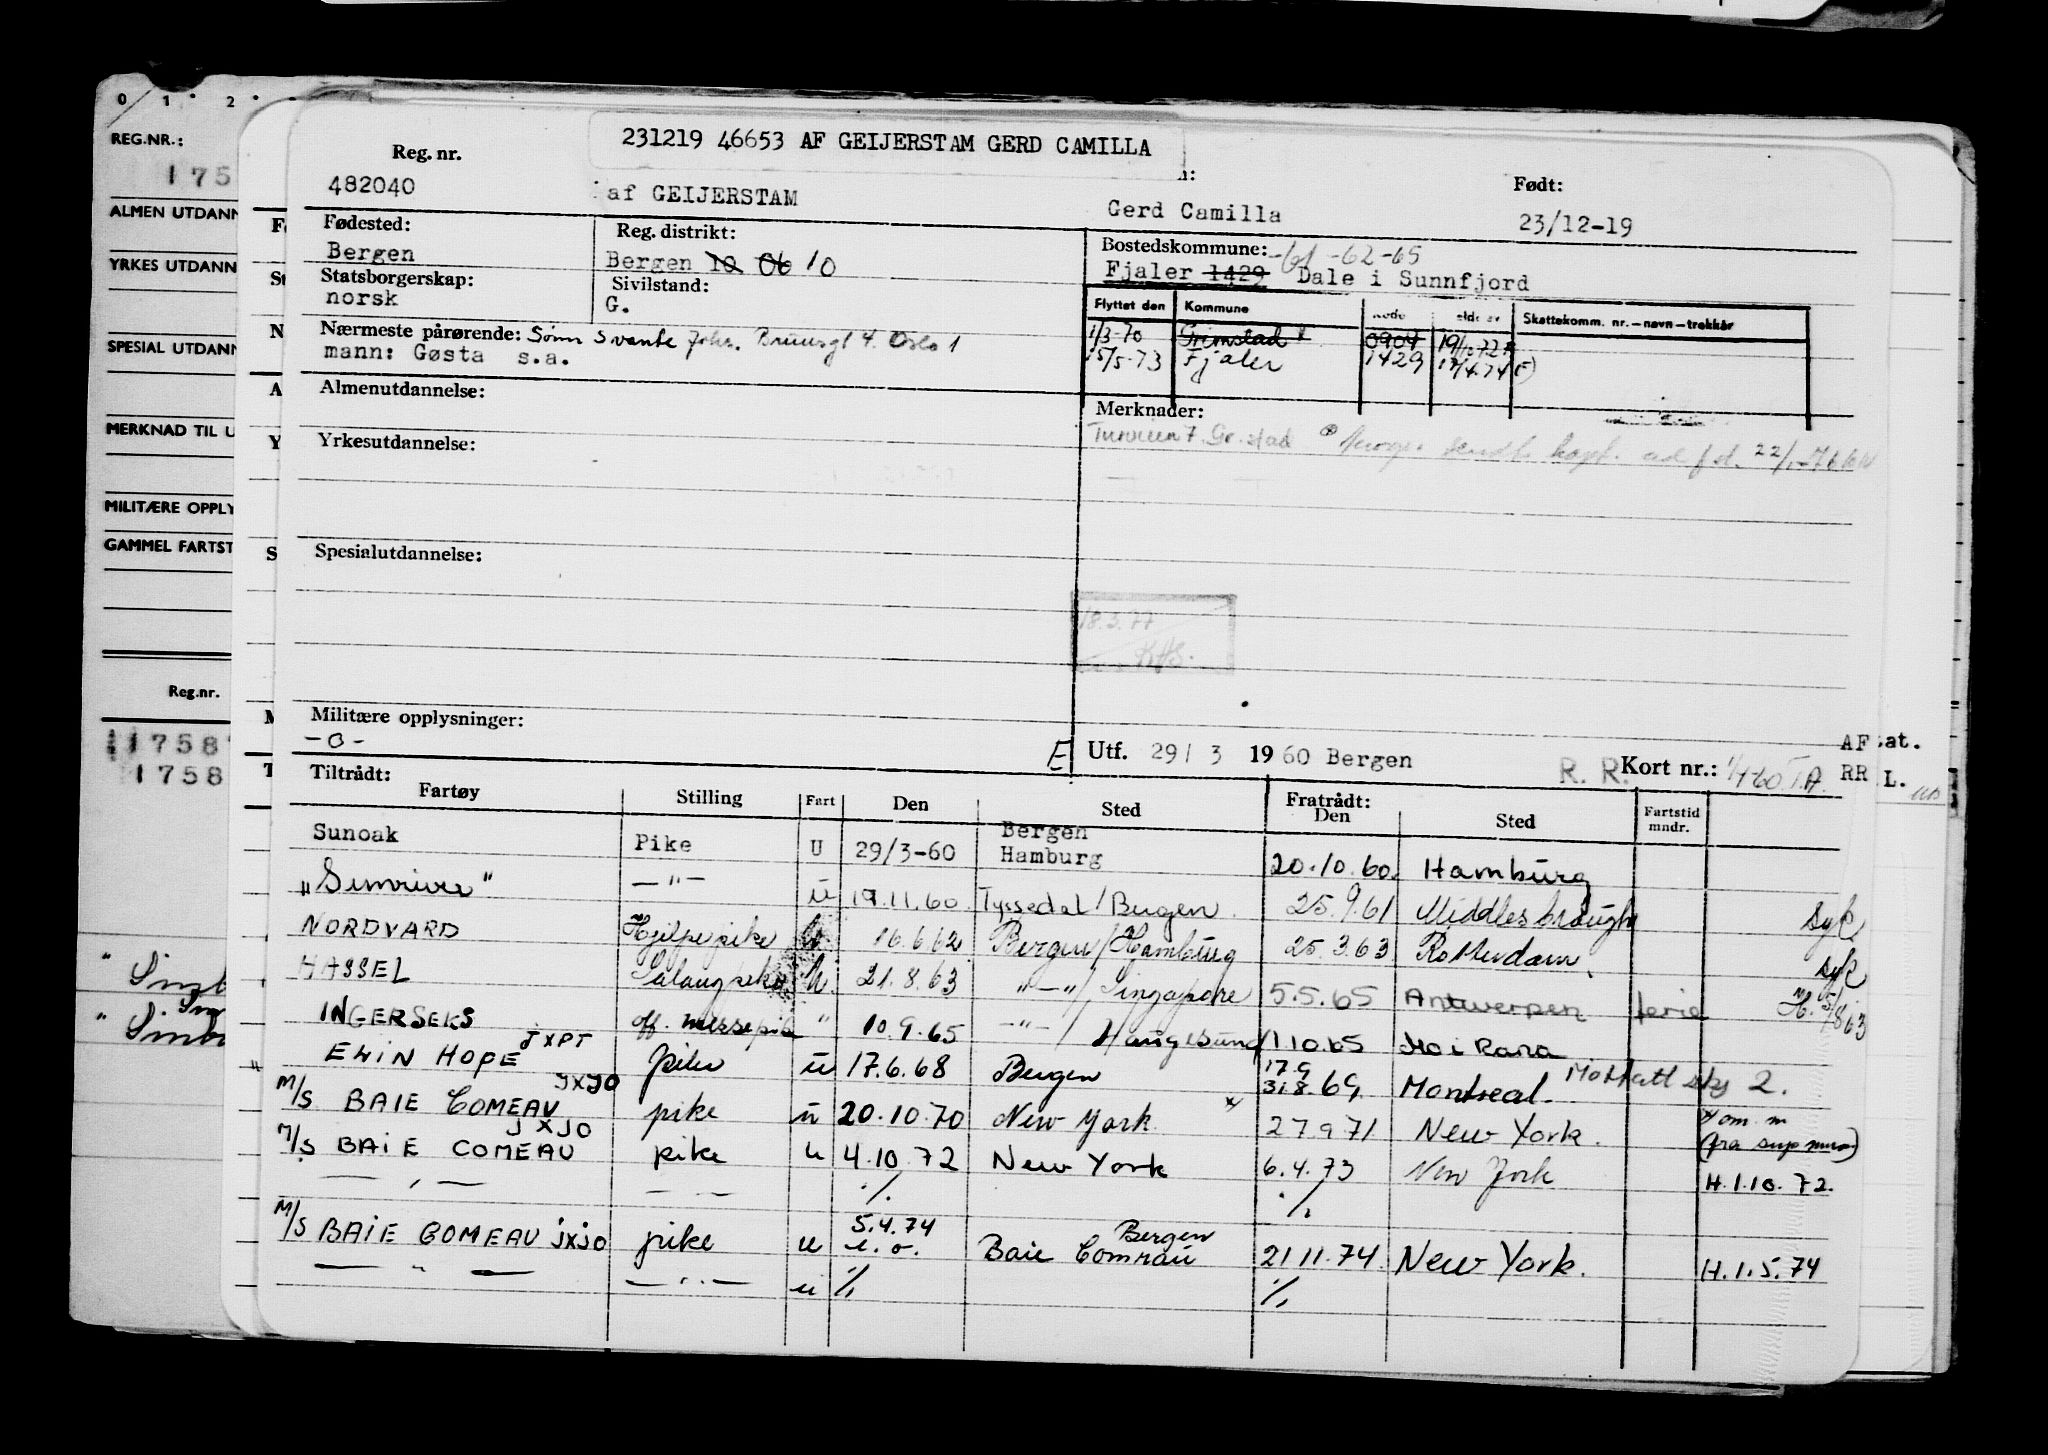 0 1 2
REG.NR.:
175
ALMEN UTDANN
YRKES UTDANN
SPESIAL UTDANN
MERKNAD TIL U
MILITÆRE OPPLY
GAMMEL FARTST
Reg.nr.
1758
1758
231219 46653 AF GEIJERSTAM GERD CAMILLA
Reg. nr. Født:
482040 af GEIJERSTAM Gerd Camilla 23/12-19
Fødested: Reg. distrikt: Bostedskommune: -61 -62-65
Bergen Bergen 10 06 10 Fjaler 1429 Dale i Sunnfjord
Statsborgerskap: Sivilstand:
norsk G.
Flyttet den Kommune Skattekomm. nr.—navn—trekkår
Nærmeste pårørende: Sønn Svante Johs. Bruunsgt 4. Oslo 1
mann: Gøsta s.a.
1/3-70 Grimstad 0904
15/5-73 Fjaler 1429 17/4.74
Almenutdannelse: Merknader:
Yrkesutdannelse:
Spesialutdannelse:
18.3.77
Militære opplysninger:
-o-
E Utf. 29/3 1960 Bergen R. R. Kort nr.: AF at.
RR L.
Tiltrådt: Fratrådt:
Fartøy Stilling Fart Den Sted Den Sted Fartstid mndr.
Sunoak Pike U 29/3-60 Bergen Hamburg 20.10.60. Hamburg
— " — u 19.11.60 Tyssedal/Bergen. 25.9.61 Middlesbrough syk
NORDVARD Hjelpepike 16.6.62 Bergen/Hamburg 25.3.63 Rotterdam syk
HASSEL Salongpike u. 21.8.63 "—"/Singapore 5.5.65 Antwerpen ferie
INGERSEKS off. messepike " 10.9.65 —"—/Haugesund 1.10.65 Mo i Rana
ELIN HOPE JXPT pike u 17.6.68 Bergen 17.9 31.8.69. Montreal. 2.
M/S BAIE COMEAU JXJO pike u 20.10.70 New York 27.9.71 New York.
M/S BAIE COMEAU JXJO pike u 4.10.72 New York 6.4.73 New York H.1.10.72.
— " — — " — ./. ./.
M/S BAIE COMEAU JXJO pike u 5.4.74 Bergen Baie Comeau 21.11.74. New York. H.1.5.74
— " — — " — u ./. ./.